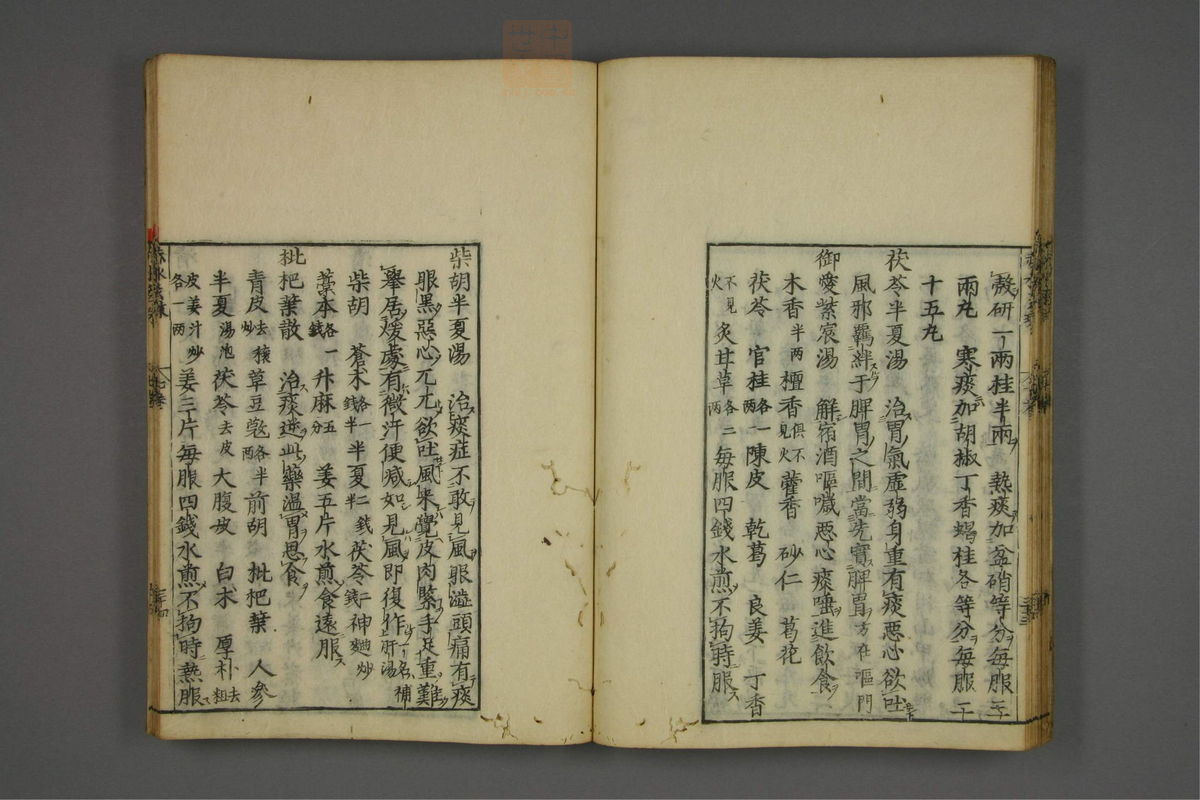 殼研一兩桂半兩 熱痰加盆硝等分每服二十
兩丸 寒痰加胡椒丁香蝎桂各等分每服二
十五丸
茯苓半夏湯 治胃氣虛弱身重有痰惡心欲吐
風邪羈絆于脾胃之間當先實脾胃方在嘔門
御愛紫宸湯 解宿酒嘔噦惡心痰唾進飲食
木香半兩檀香俱不見火藿香 砂仁 葛花
茯苓 官桂各一兩陳皮 乾葛 良姜 丁香
不見火炙甘草各二兩每服四錢水煎不拘時服
柴胡半夏湯 治痰症不敢見風眼澁頭痛有痰
眼黑惡心兀兀欲吐風來覺皮肉緊手足重難
舉居煖處有微汗便減如見風即復作一名補肝湯
柴胡 蒼朮各一錢半半夏二錢半茯苓二錢神麯炒
藁本各一錢升麻五分 姜五片水煎食遠服
枇杷葉散 治痰逆此藥溫胃思食
青皮去穰炒草豆蔻各半兩前胡 枇杷葉 人參
半夏湯泡茯苓去皮大腹皮 白朮 厚朴去粗
皮姜汁炒各一兩姜三片每服四錢水煎不拘時熱服